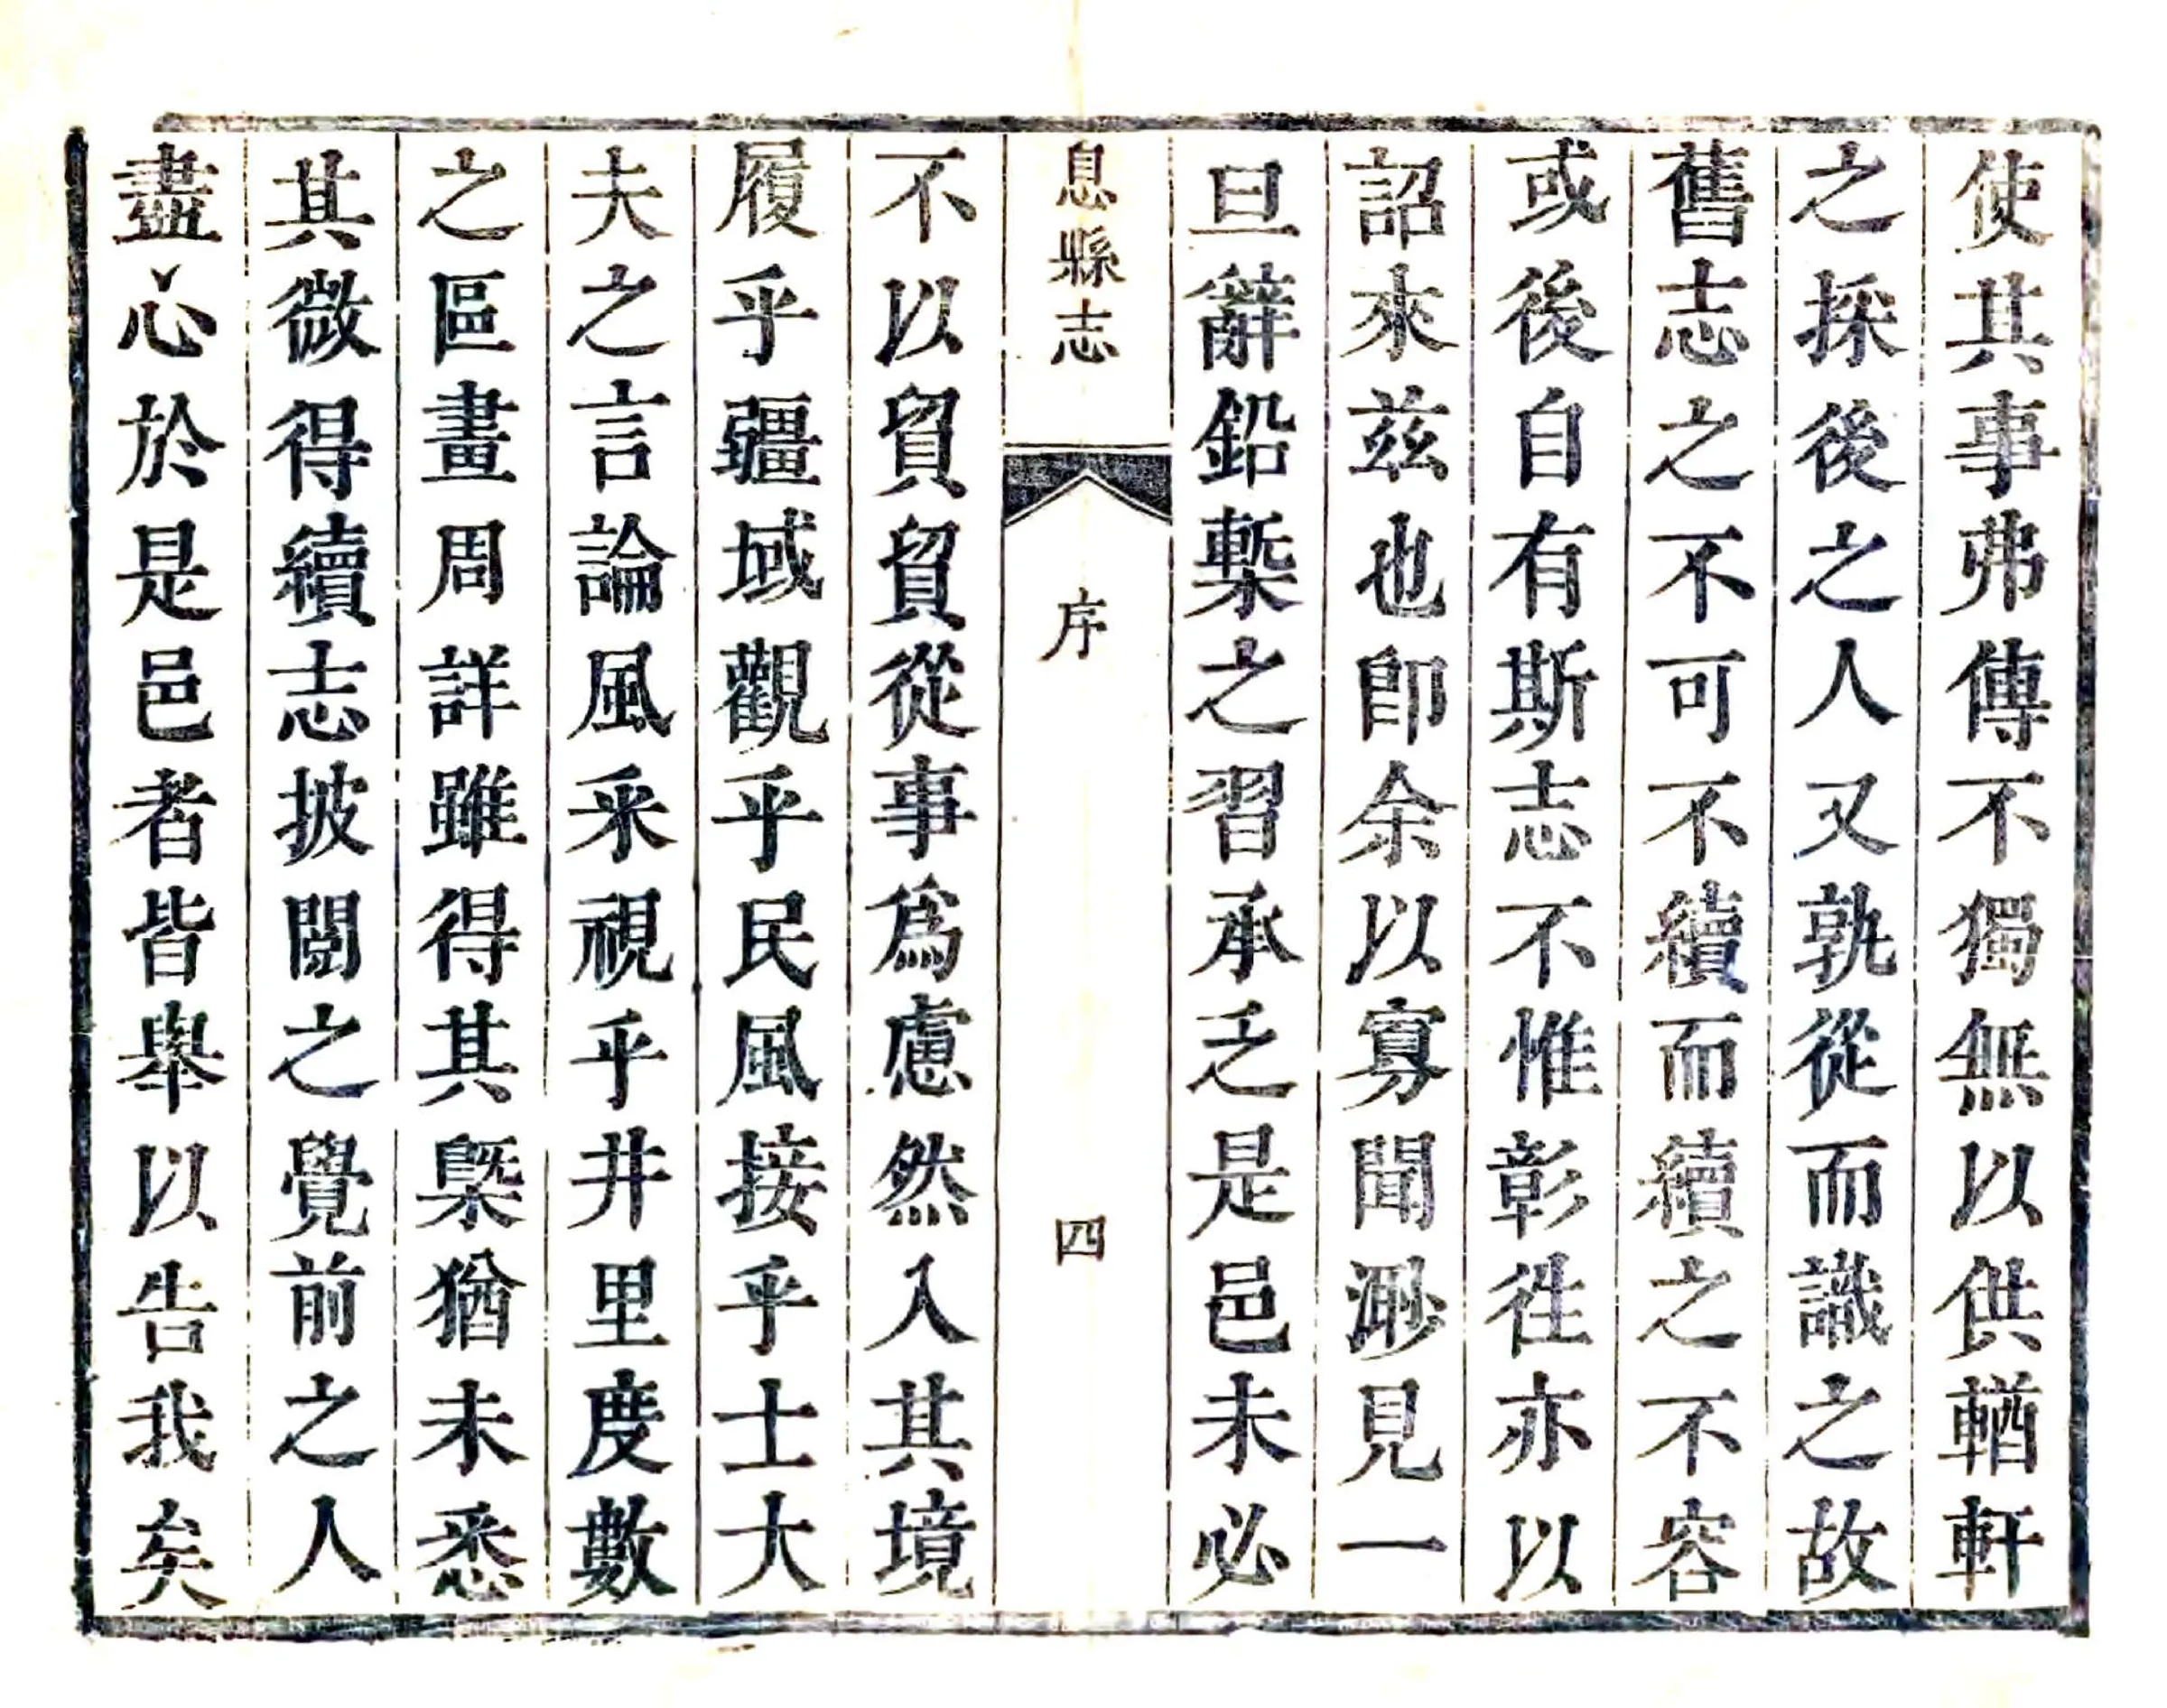 使其事弗傳不獨無以供輶軒
之採後之人又孰從而識之故
舊志之不可不續而續之不容
或後自有斯志不惟彰徃亦以
詔來兹也卽余以寡聞渺見一
旦辭鉛槧之習承乏是邑未必
息縣志
序
四
不以貿貿從事爲慮然入其境
履乎疆域觀乎民風接乎士大
夫之言論風采視乎井里度數
之區畫周詳雖得其槩猶未悉
其微得續志披閱之覺前之人
盡心於是邑者皆舉以告我矣